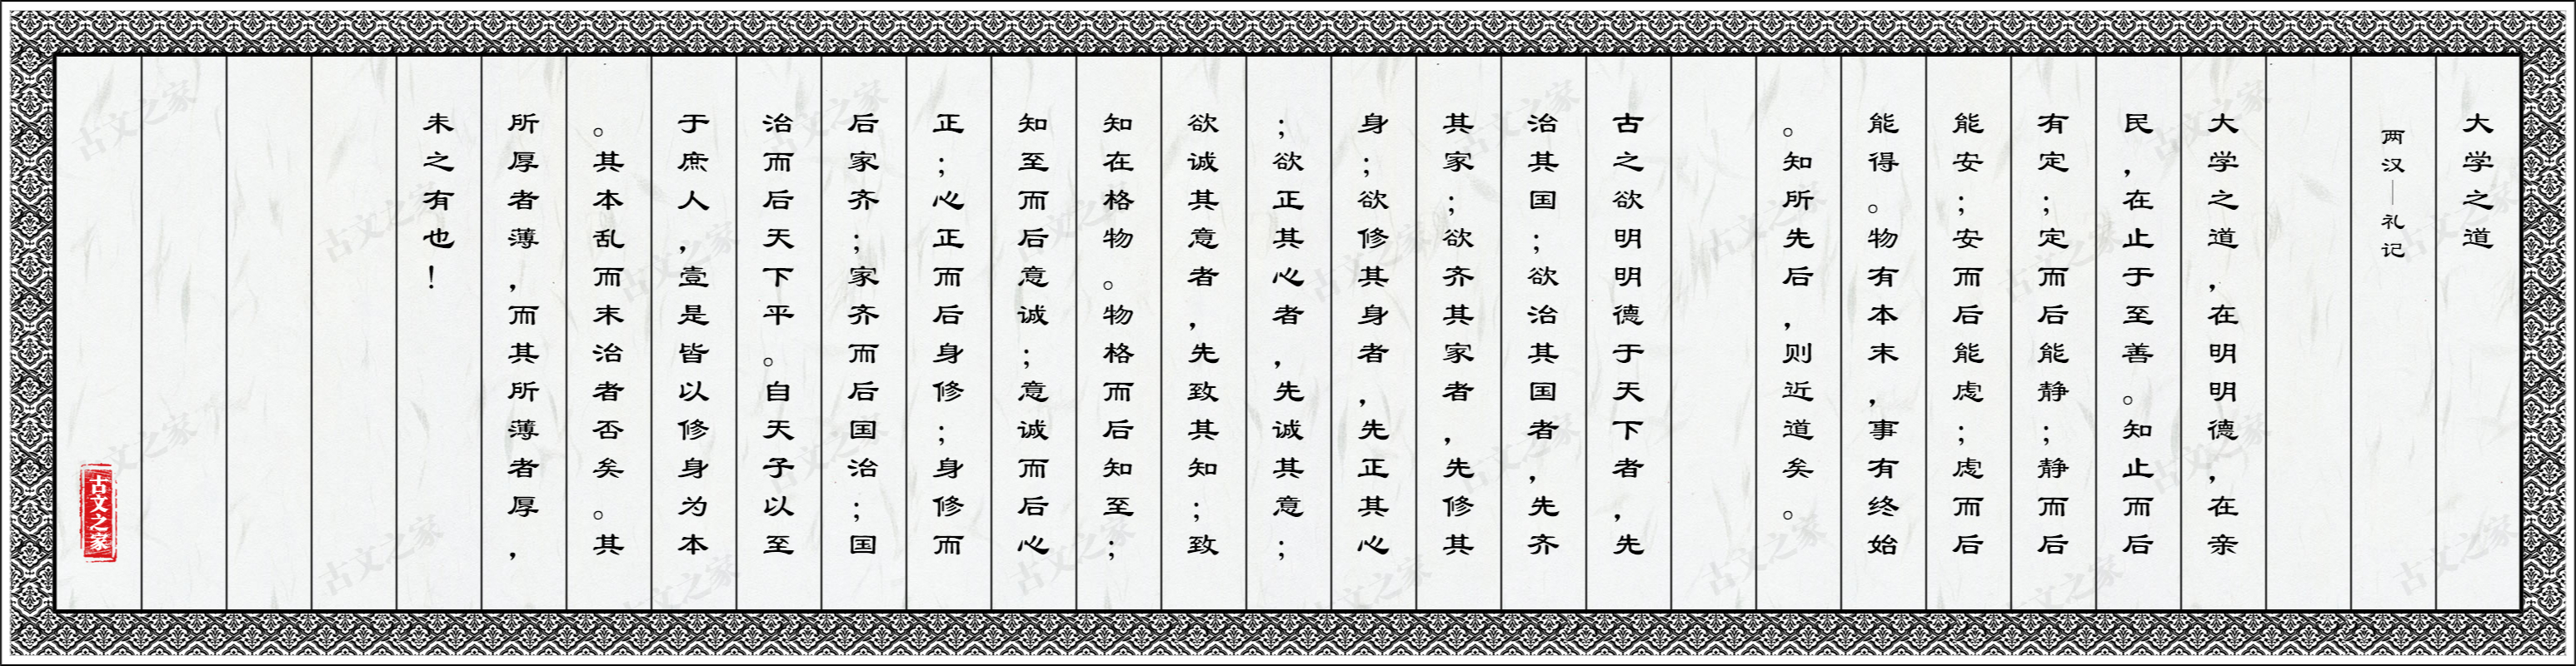 大学之道
两汉—礼记
大学之道，在明明德，在亲
民，在止于至善。知止而后
有定；定而后能静；静而后
能安；安而后能虑；虑而后
能得。物有本末，事有终始
。知所先后，则近道矣。
古之欲明明德于天下者，先
治其国；欲治其国者，先齐
其家；欲齐其家者，先修其
身；欲修其身者，先正其心
；欲正其心者，先诚其意；
欲诚其意者，先致其知；致
知在格物。物格而后知至；
知至而后意诚；意诚而后心
正；心正而后身修；身修而
后家齐；家齐而后国治；国
治而后天下平。自天子以至
于庶人，壹是皆以修身为本
。其本乱而末治者否矣。其
所厚者薄，而其所薄者厚，
未之有也！
古文之家